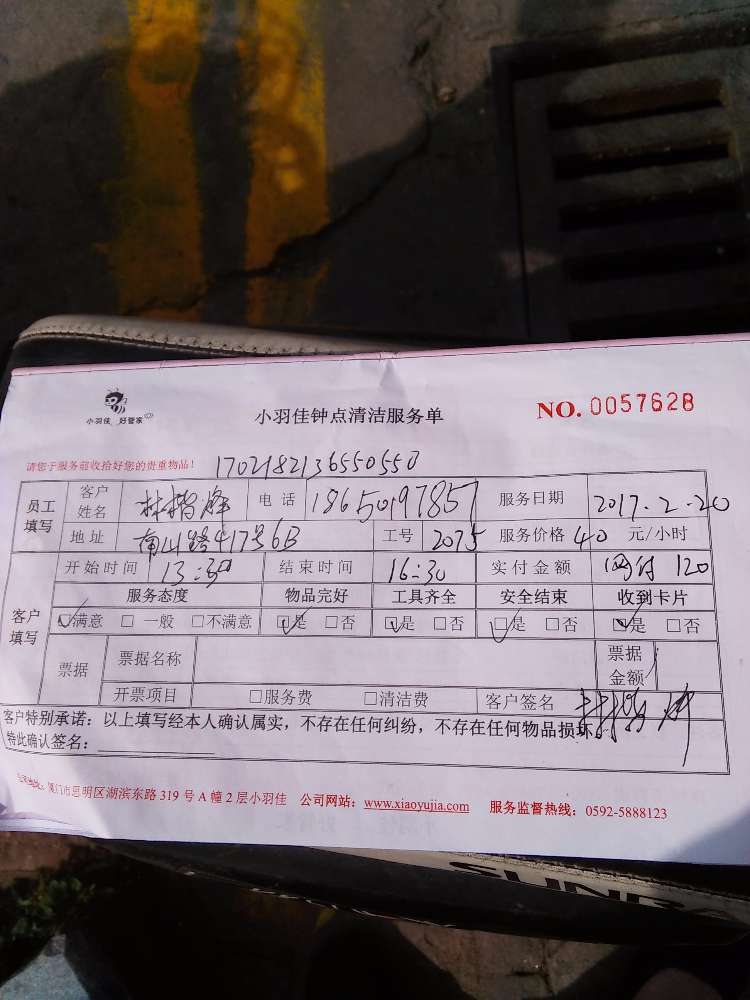 小羽佳 好管家
小羽佳钟点清洁服务单
NO. 0057628
请您于服务前收拾好您的贵重物品！ 1702182136550550
员工填写 客户姓名 林楷烽 电话 18650197857 服务日期 2017.2.20
地址 南山路417号6B 工号 2075 服务价格 40 元/小时
客户填写 开始时间 13:30 结束时间 16:30 实付金额 网付 120
服务态度 物品完好 工具齐全 安全结束 收到卡片
☑满意 □一般 □不满意 ☑是 □否 ☑是 □否 ☑是 □否 ☑是 □否
票据 票据名称 票据金额
开票项目 □服务费 □清洁费 客户签名
客户特别承诺：以上填写经本人确认属实，不存在任何纠纷，不存在任何物品损坏。
特此确认签名：
地址：厦门市思明区湖滨东路 319 号 A 幢 2 层小羽佳 公司网站：www.xiaoyujia.com 服务监督热线：0592-5888123